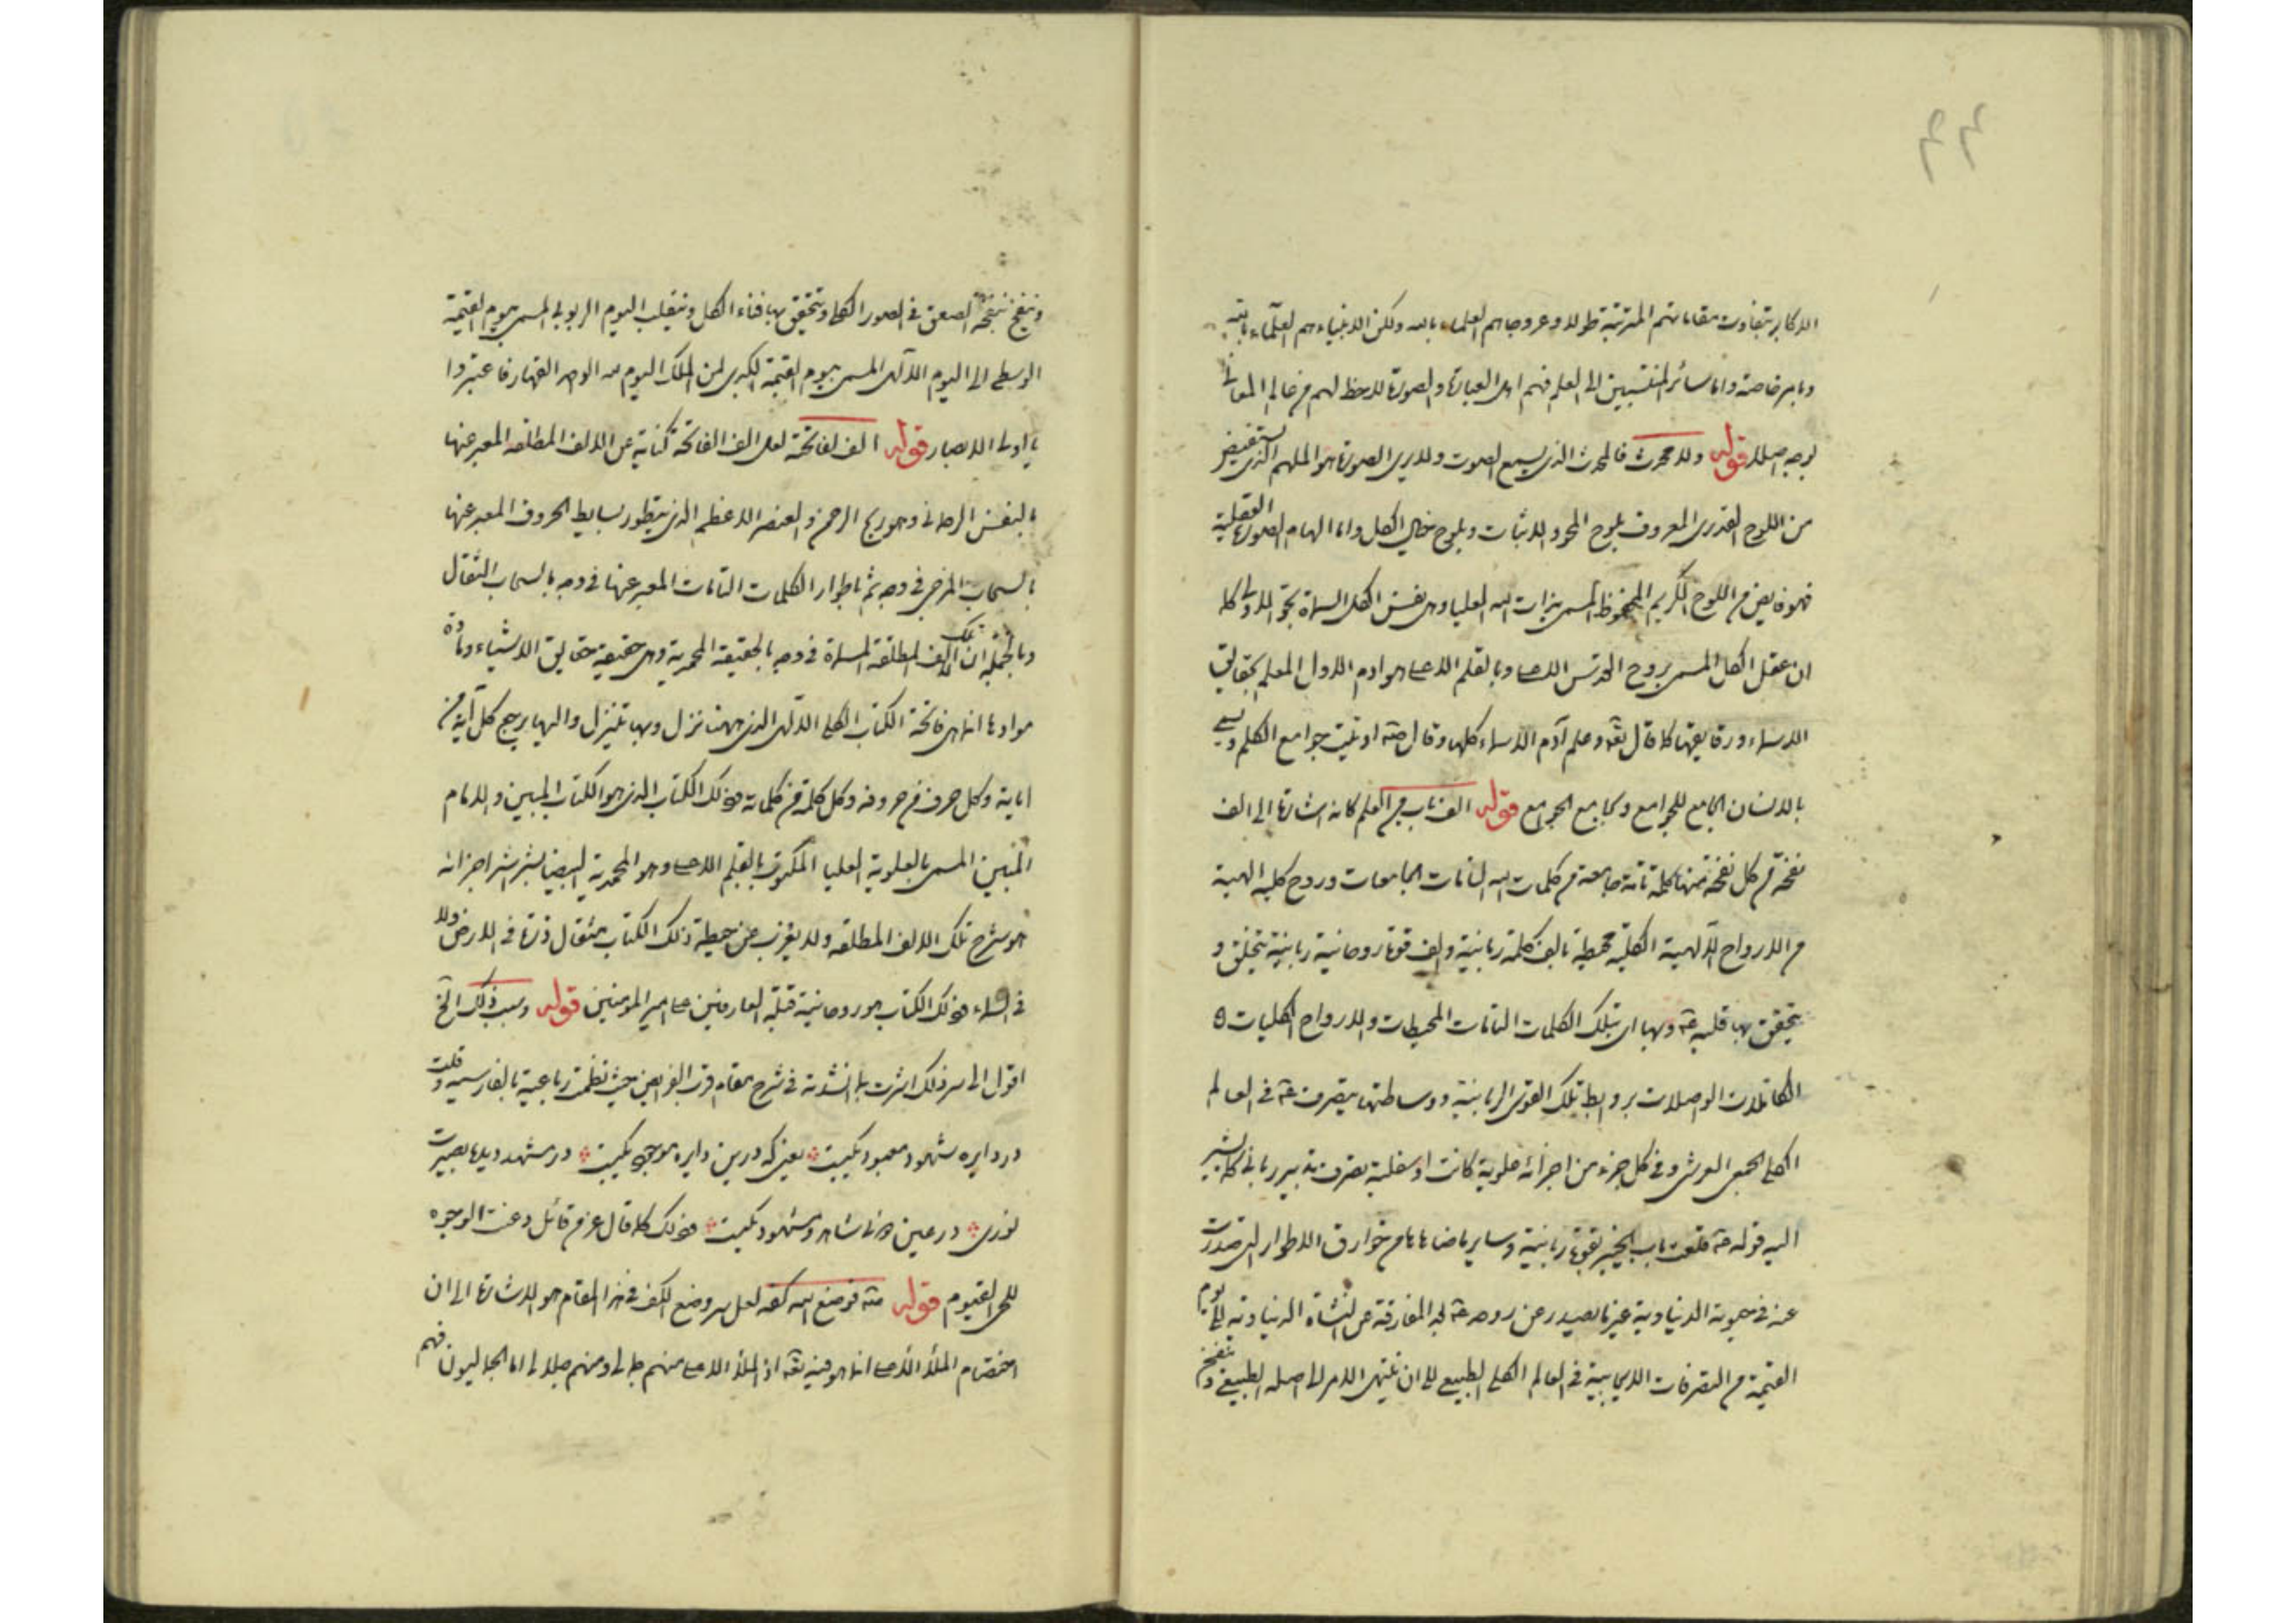 الاكابر بتفاوت مقاماتهم المترتبة طولا وعروجاهم العلماء بالله ولكن الانبياء هم العلماء بالله
وبامره خاصة واما سائر المنتسبين الى العلم فهم اهل العبارة والصورة لاحظ لهم من عالم المعانى
بوجه اصلا قوله ولا محدث فالمحدث الذى يسمع الصوت ولا يرى الصورة هو الملهم الذى يستفيض
من اللوح القدرى المعروف بلوح المحو والاثبات وبلوح خيال الكل واما الهام الصورة العقلية
فهو فايض من اللوح الكريم المحفوظ المسمى بذات الله العليا وهى نفس الكل المسماة بحوا الاولى كما
ان عقل الكل المسمى بروح القدس الاعلى وبالقلم الاعلى هو ادم الاول المعلم بحقايق
الاسماء ورقايقها كما قال تعه وعلم آدم الاسماء كلها وقال صه اوتيت جوامع الكلم ويسمى
بالانسان الجامع للجوامع وبجامع الجوامع قوله الف باب من العلم كانه اشارة الى الف
نفخة من كل نفخة منها كلمة تامة جامعة من كلمات الله التامات الجامعات وروح كلية الهية
من الارواح الالهية الكلية محيطة بالف كلمة ربانية والف قوة روحانية ربانية يتخلق و
يتحقق بها قلبه عه وبها اى بتلك الكلمات التامات المحيطات والارواح الكليات
الكاملات الواصلات بروابط تلك القوى الربانية ووساطتها يتصرف عه فى العالم
الكلى الجمعى العرشى وفى كل جزء من اجزائه علوية كانت او سفلية تصرف تدبير ربانى كما يشير
اليه قوله عه قلعت باب الخيبر بقوة ربانية وساير ما ضاهاها من خوارق الاطوار التى صدرت
عنه فى حيوته الدنياوية غير ما يصدر عن روحه عه بعد المفارقة عن النشأة الدنياوية الى يوم
القيمة من التصرفات الايجابية فى العالم الكلى الطبيعى الى ان ينتهى الامر الى اصله الطبيعى
وينفخ بنفخة الصعق فى الصور الكلى ويتحقق بها فناء الكل وينقلب اليوم الربوبى المسمى بيوم القيمة
الوسطى الى اليوم الالهى المسمى بيوم القيمة الكبرى لمن الملك اليوم لله الواحد القهار فاعتبروا
يا اولى الابصار قوله الف الفاتحة لعل الف الفاتحة كناية عن الالف المطلقه المعبر عنها
بالنفس الرحمانى وهو ريح الرحمن والعنصر الاعظم الذى يتطور ببسايط الحروف المعبر عنها
بالسحاب المزجى فى وجه ثم باطوار الكلمات التامات المعبر عنها فى وجه بالسحاب الثقال
وبالجمله ان تلك الالف المطلقة المسماة فى وجه بالحقيقة المحمدية وهى حقيقة حقايق الاشياء ومادة
موادها انما هى فاتحة الكتاب الكلى الالهى الذى منها نزل وبها تنزل واليها يرجع كل آية من
اياته وكل حرف من حروفه وكل كلمة من كلماته فذلك الكتاب الذى هو الكتاب المبين والامام
المبين المسمى بالعلوية العليا المكتوب بالقلم الاعلى وهو المحمدية البيضا بشراشر اجزائه
هو شرح تلك الالف المطلقه ولا يعزب عن حيطة ذلك الكتاب مثقال ذرة فى الارض ولا
فى السماء فذلك الكتاب هو روحانية قبلة العارفين على امير المؤمنين قوله وسبب ذلك الخ
اقول الى سر ذلك اشرت بما انشدته فى شرح مقام قرب الفرايض حيث نظمت رباعية بالفارسيه وقلت
در دايره شهود معبود يكيست يعنى كه درين دايره موجود يكيست در مشهد ديده بصيرت
نورى در عين فنا شاهد ومشهود يكيست فذلك كما قال عز من قائل وعنت الوجوه
للحى القيوم قوله صه فوضع الله كفه لعل سر وضع الكف فى هذا المقام هو الاشارة الى ان
اختصام الملأ الأعلى انما هو فيه تعه اذ الملأ الاعلى منهم جمالى ومنهم جلالى اما الجماليون فهم